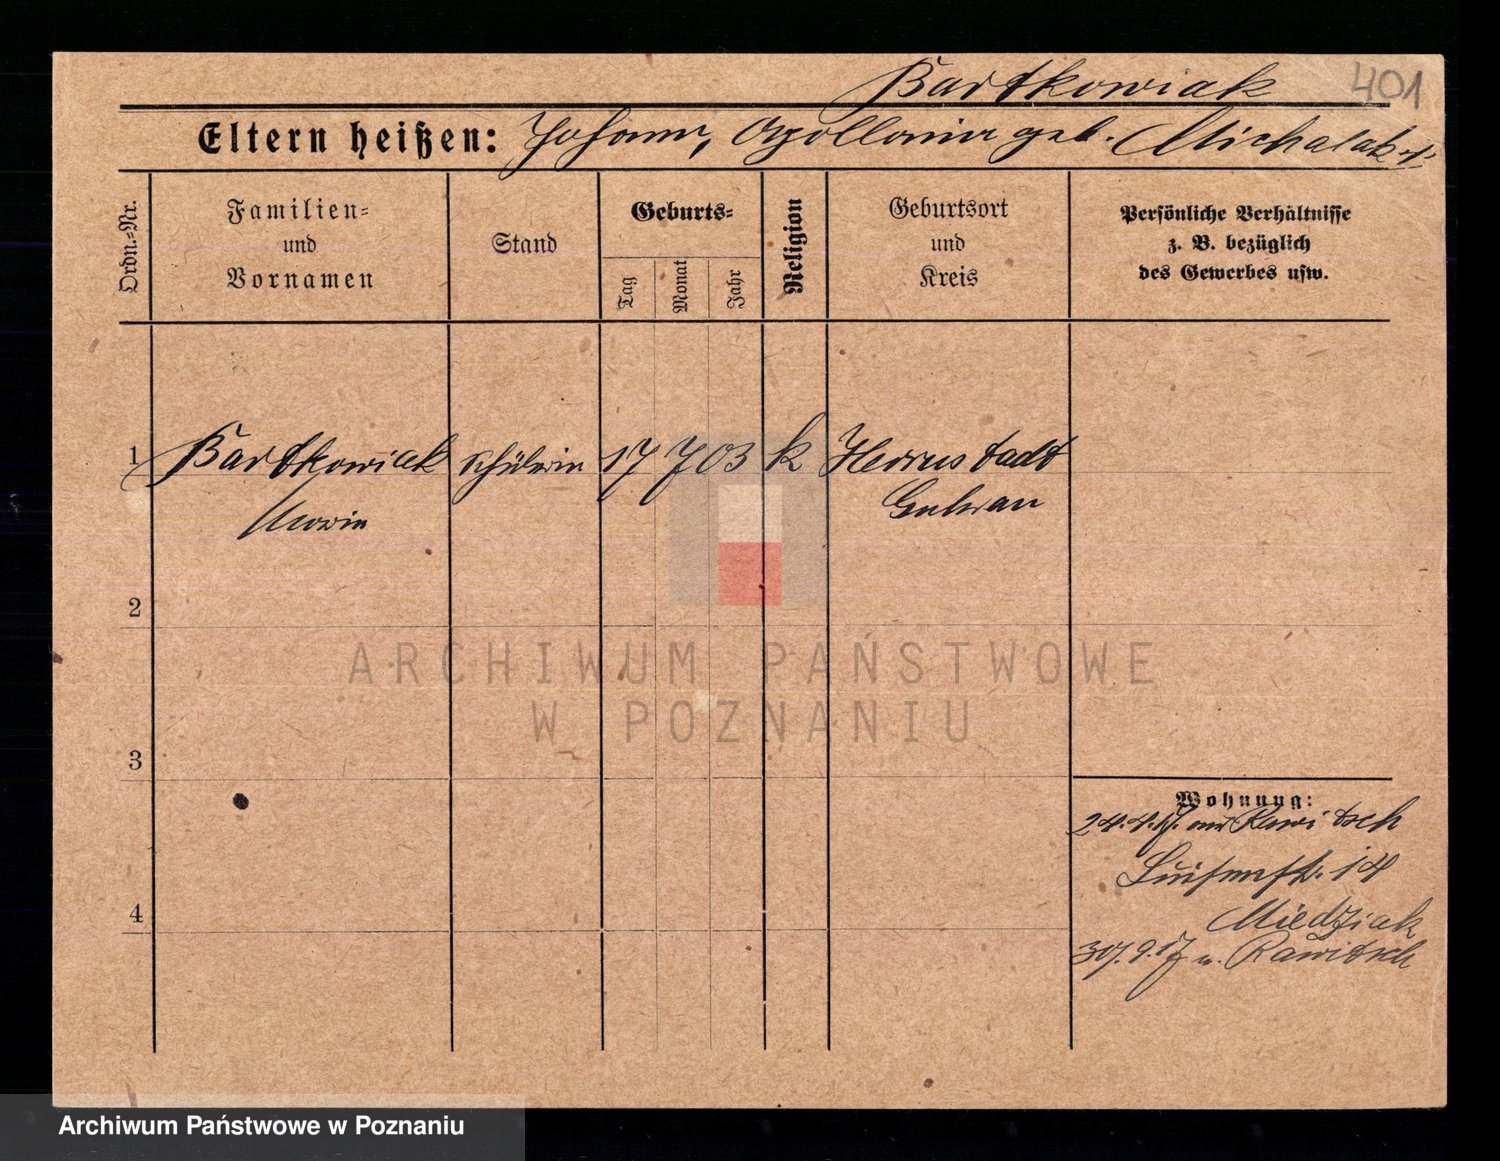 Bartkowiak
401
Eltern heißen: Johann, Apollonia geb. Michalak
Ordn.=Nr.
Familien=
und
Vornamen
Stand
Geburts=
Tag
Monat
Jahr
Religion
Geburtsort
und
Kreis
Persönliche Verhältnisse
z. B. bezüglich
des Gewerbes usw.
1 Bartkowiak Schülerin 17 7 03 k Herrnstadt
Maria Guhrau
2
3
4
ARCHIWUM PAŃSTWOWE
W POZNANIU
Wohnung:
24.4.17. aus Rawitsch
Luisenstr. 14
Miedziak
30.9.17 n. Rawitsch
Archiwum Państwowe w Poznaniu